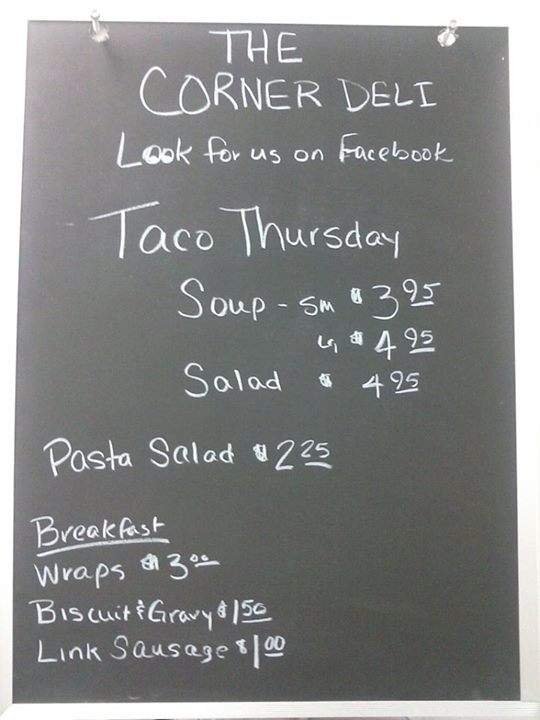 THE
CORNER DELI
Look for us on Facebook
Taco Thursday
Soup - SM $3.95
LG $4.95
Salad $4.95
Pasta Salad $2.25
Breakfast
Wraps $3.00
Biscuit & Gravy $1.50
Link Sausage $1.00